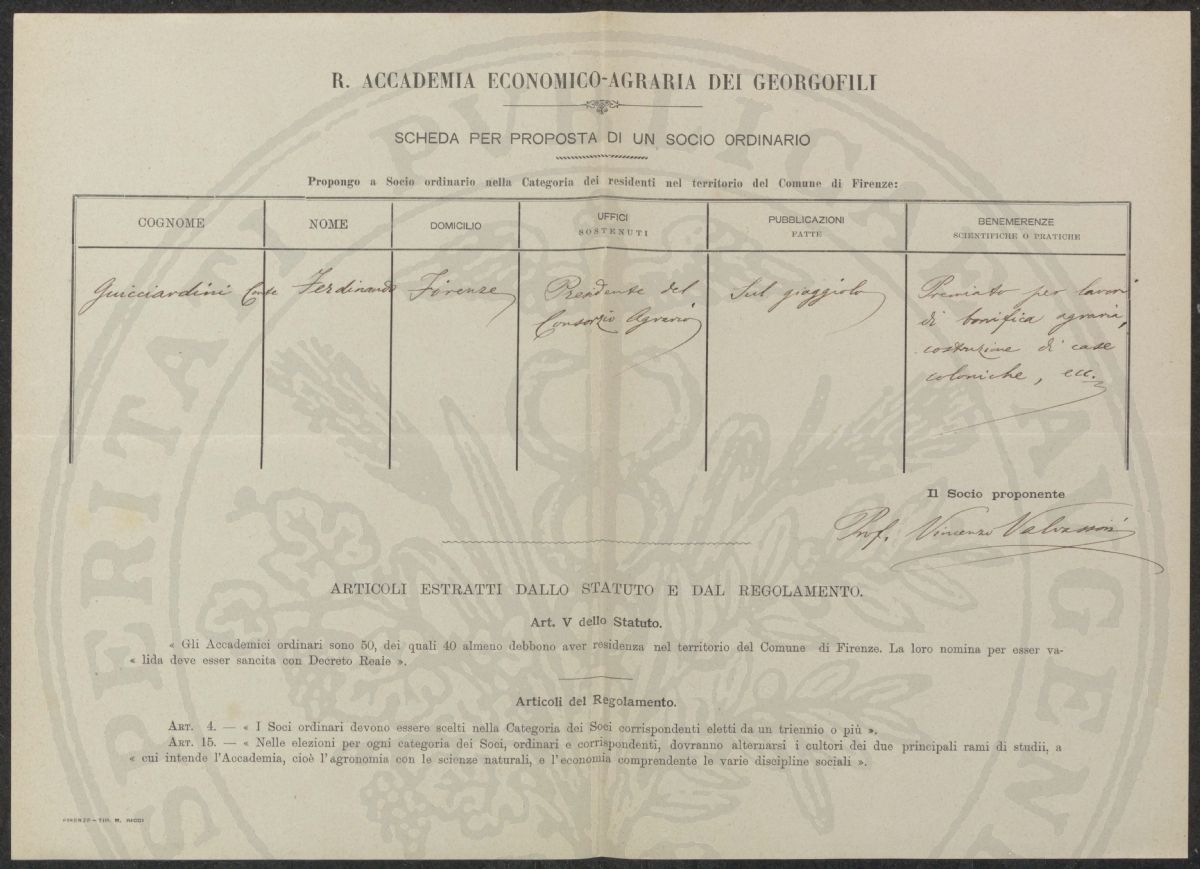 R. ACCADEMIA ECONOMICO-AGRARIA DEI GEORGOFILI
SCHEDA PER PROPOSTA DI UN SOCIO ORDINARIO
Propongo a Socio ordinario nella Categoria dei residenti nel territorio del Comune di Firenze:
COGNOME
NOME
DOMICILIO
UFFICI
SOSTENUTI
PUBBLICAZIONI
FATTE
BENEMERENZE
SCIENTIFICHE O PRATICHE
Guicciardini Conte
Ferdinando
Firenze
Presidente del
Consorzio Agrario
Sul giaggiolo
Premiato per lavori
di bonifica agraria,
costruzione di case
coloniche, ecc.
Il Socio proponente
Prof. Vincenzo Valvassori
ARTICOLI ESTRATTI DALLO STATUTO E DAL REGOLAMENTO.
Art. V dello Statuto.
« Gli Accademici ordinari sono 50, dei quali 40 almeno debbono aver residenza nel territorio del Comune di Firenze. La loro nomina per esser va-
« lida deve esser sancita con Decreto Reale ».
Articoli del Regolamento.
ART. 4. — « I Soci ordinari devono essere scelti nella Categoria dei Soci corrispondenti eletti da un triennio o più ».
ART. 15. — « Nelle elezioni per ogni categoria dei Soci, ordinari e corrispondenti, dovranno alternarsi i cultori dei due principali rami di studii, a
« cui intende l'Accademia, cioè l'agronomia con le scienze naturali, e l'economia comprendente le varie discipline sociali ».
FIRENZE — TIP. M. RICCI
PROSPERITATI PUBLICAE AUGENDAE